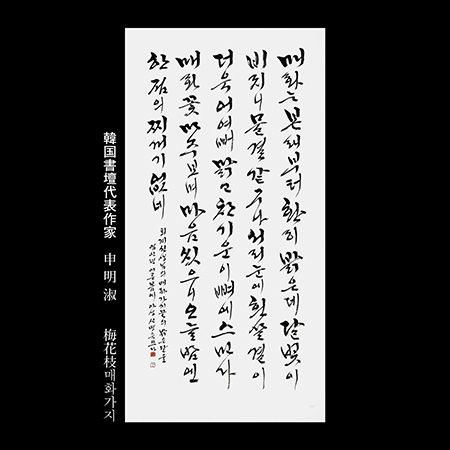 매화는 본시부터 환히 밝은데 달빛이
비치니 물결 같구나 서리 눈에 흰 살결이
더욱 어여뻐 맑고 찬 기운이 뼈에 스민다
매화꽃 마주보며 마음 오늘밤엔
한 점의 찌꺼기 없네
韓国書壇代表作家 申明淑 梅花枝매화가지